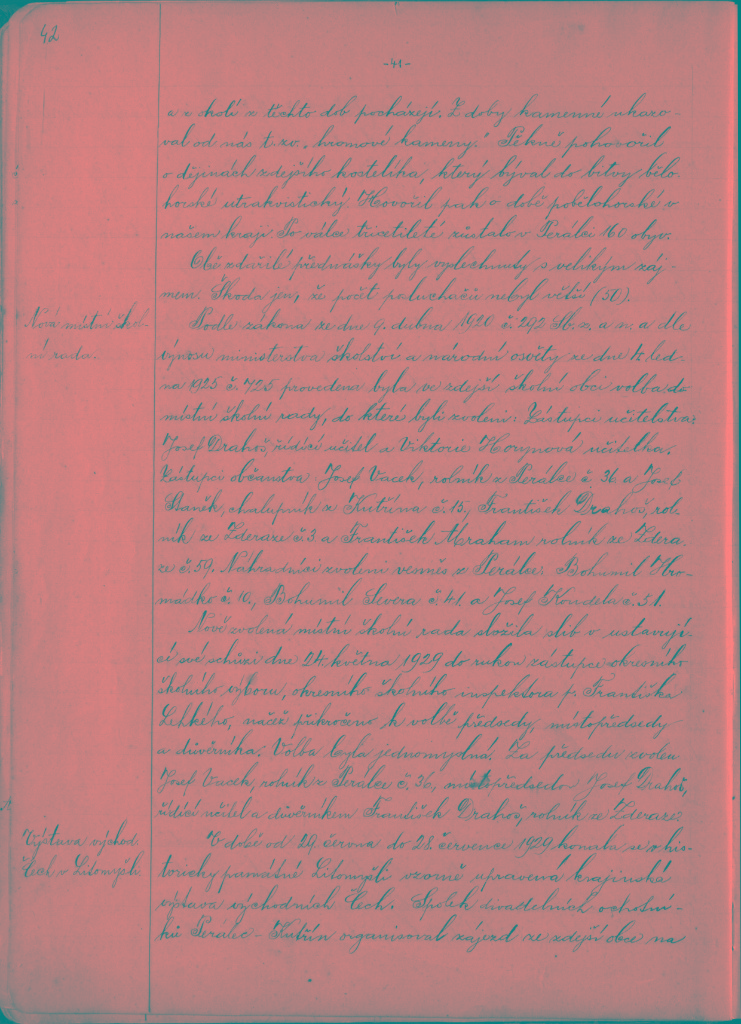 42
-41-
a z okolí z těchto dob pocházejí. Z doby kamenné ukazo-
val od nás t. zv. „hromové kameny." Pěkně pohovořil
o dějinách zdejšího kostelíka, který býval do bitvy bělo-
horské utrakvistický. Hovořil pak o době pobělohorské v
našem kraji. Po válce třicetileté zůstalo v Perálci 160 obyv.
Obě zdařilé přednášky byly vyslechnuty s velikým záj-
mem. Škoda jen, že počet posluchačů nebyl větší (50).
Nová místní škol-
ní rada.
Podle zákona ze dne 9. dubna 1920 č. 292 Sb. z. a n. a dle
výnosu ministerstva školství a národní osvěty ze dne 14. led-
na 1925 č. 725 provedena byla ve zdejší školní obci volba do
místní školní rady, do které byli zvoleni: Zástupci učitelstva:
Josef Drahoš, řídící učitel a Viktorie Horynová učitelka.
Zástupci občanstva: Josef Vacek, rolník z Perálce č. 36. a Josef
Staněk, chalupník z Kutřína č. 15., František Drahoš, rol-
ník ze Zderaze č. 3 a František Abraham rolník ze Zdera-
ze č. 59. Náhradníci zvoleni vesměs z Perálce: Bohumil Hro-
mádko č. 10., Bohumil Severa č. 41. a Josef Koudela č. 51.
Nově zvolená místní školní rada složila slib v ustavují-
cí své schůzi dne 24. května 1929 do rukou zástupce okresního
školního výboru, okresního školního inspektora p. Františka
Lehkého, načež přikročeno k volbě předsedy, místopředsedy
a důvěrníka. Volba byla jednomyslná. Za předsedu zvolen
Josef Vacek, rolník z Perálce č. 36., místopředsedou Josef Drahoš,
řídící učitel a důvěrníkem František Drahoš, rolník ze Zderaze.
Výstava východ.
Čech v Litomyšli.
V době od 29. června do 28. července 1929 konala se v his-
toricky památné Litomyšli vzorně upravená krajinská
výstava východních Čech. Spolek divadelních ochotní-
ků Perálec - Kutřín organisoval zájezd ze zdejší obce na